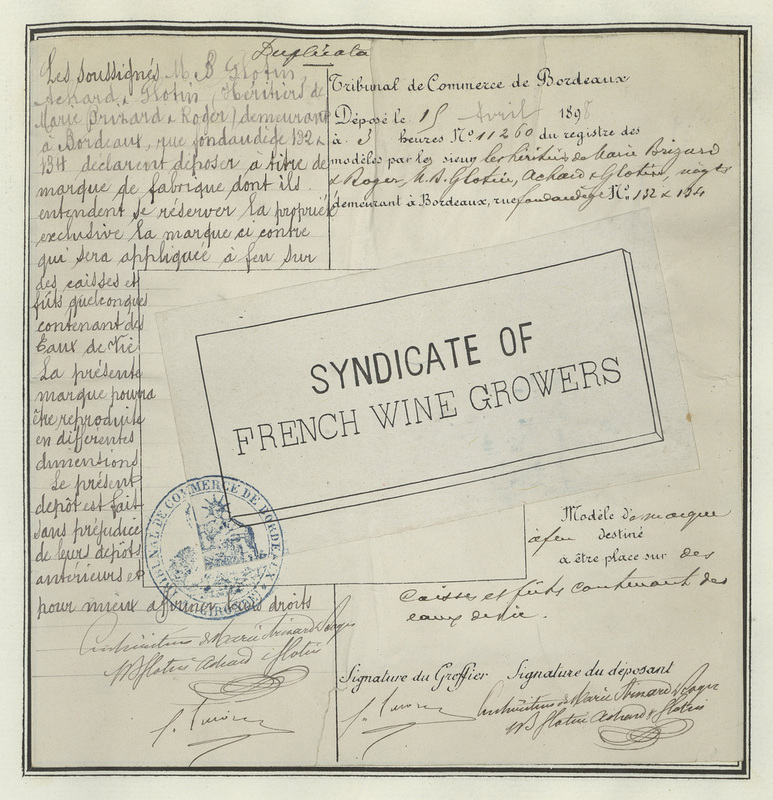 Duplicata
Les soussignés M. B Glotin,
Achard & Glotin (Héritiers de
Marie Brizard & Roger) demeurant
à Bordeaux, rue fondaudège 132 &
134 déclarent déposer a titre de
marque de fabrique dont ils
entendent se réserver la propriété
exclusive la marque ci contre
qui sera appliquée à feu sur
des caisses et
fûts quelconques
contenant des
Eaux de Vie
La présente
marque pourra
être reproduite
en différentes
dimensions
Le présent
dépôt est fait
sans préjudice
de leurs dépôts
antérieurs et
pour mieux affirmer leurs droits
Les héritiers de Marie Brizard & Roger
M B Glotin Achard & Glotin
Tribunal de Commerce de Bordeaux
Déposé le 15 Avril 1898
à 3 heures Nº 11260 du registre des
modèles par les sieurs les héritiers de Marie Brizard
& Roger, M. B. Glotin, Achard & Glotin, négts
demeurant à Bordeaux, rue fondaudège Nº 132 & 134
SYNDICATE OF
FRENCH WINE GROWERS
TRIBUNAL DE COMMERCE DE BORDEAUX
(GIRONDE)
Modèle de marque
à feu destiné
à être place sur des
caisses et fûts contenant des
eaux de vie.
Signature du Greffier
Signature du déposant
Les héritiers de Marie Brizard & Roger
M B Glotin Achard & Glotin